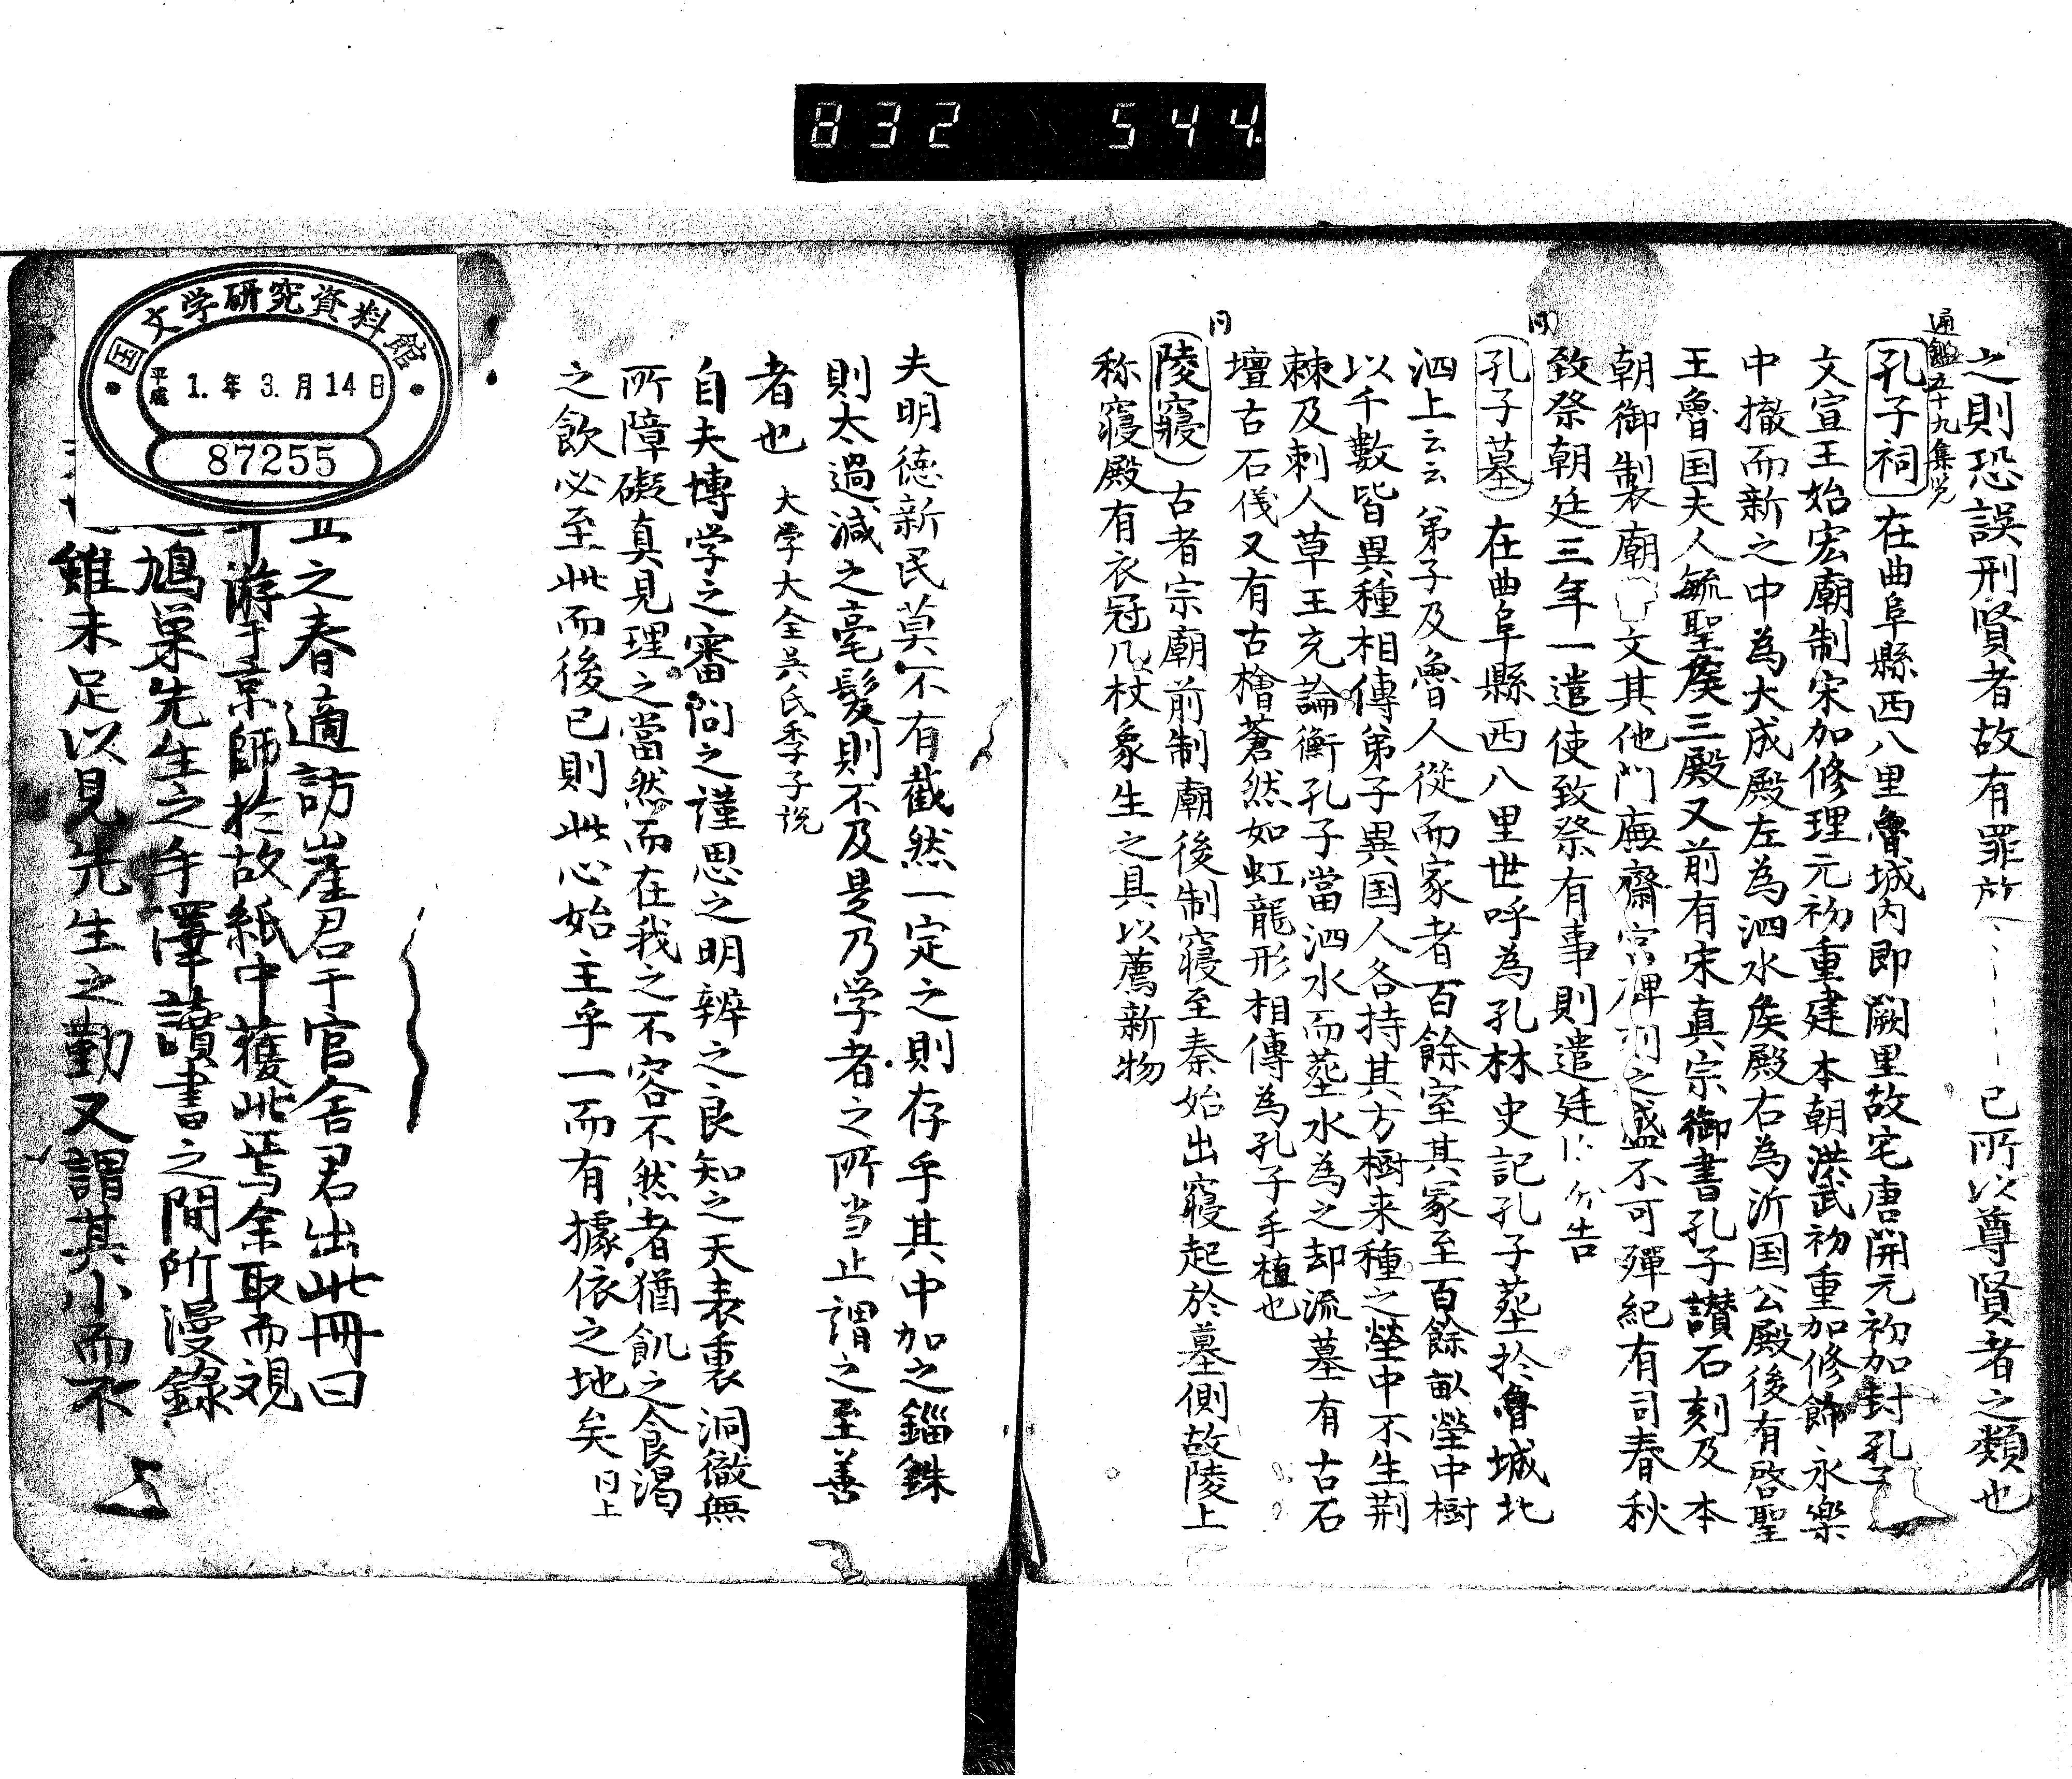 832 544
之則恐誤刑賢者故有罪放 已所以尊賢者之類也
通鑑五十九集覧
孔子祠 在曲阜縣西八里魯城内即闕里故宅唐開元初加封孔子
文宣王始宏廟制宋加修理元初重建本朝洪武初重加修飾永樂
中撤而新之中為大成殿左為泗水矦殿右為沂国公殿後有啓聖
王魯国夫人毓聖矦三殿又前有宋真宗御書孔子讃石刻及本
朝御製廟 文其他門廡齋宮 之盛不可殫紀有司春秋
致祭朝廷三年一遣使致祭有事則遣廷 告
同
孔子墓 在曲阜縣西八里世呼為孔林史記孔子塟於魯城北
泗上云云弟子及魯人從而家者百餘室其冢至百餘畝塋中樹
以千數皆異種相傳弟子異国人各持其方樹来種之塋中不生荆
棘及刺人草王充論衡孔子當泗水而塟水為之却流墓有古石
壇古石儀又有古檜蒼然如虹龍形相傳為孔子手植也
同
陵寢 古者宗廟前制廟後制寢至秦始出寢起於墓側故陵上
称寢殿有衣冠几杖象生之具以薦新物
夫明徳新民莫不有截然一定之則存乎其中加之錙銖
則太過減之毫髪則不及是乃学者之所当止謂之至善
者也 大学大全呉氏季子说
自夫博学之審問之謹思之明辨之良知之天表裏洞徹無
所障礙真見理之當然而在我之不容不然者猶飢之食渇
之飲必至此而後已則此心始主乎一而有據依之地矣 同上
之春適訪崖君于官舎君出此冊曰
游于京師於故紙中獲此焉余取而視
鳩巣先生之手澤讀書之間所漫錄
雖未足以見先生之勤又謂其小而不
国文学研究資料館
平成 1.年 3.月 14日
87255